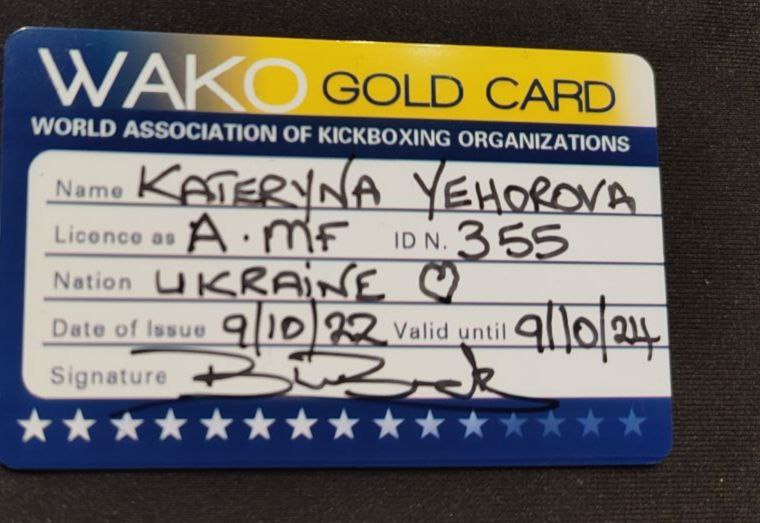 WAKO GOLD CARD
WORLD ASSOCIATION OF KICKBOXING ORGANIZATIONS
Name KATERYNA YEHOROVA
Licence as A.MF ID N. 355
Nation UKRAiNE
Date of Issue 9/10/22 Valid until 9/10/24
Signature